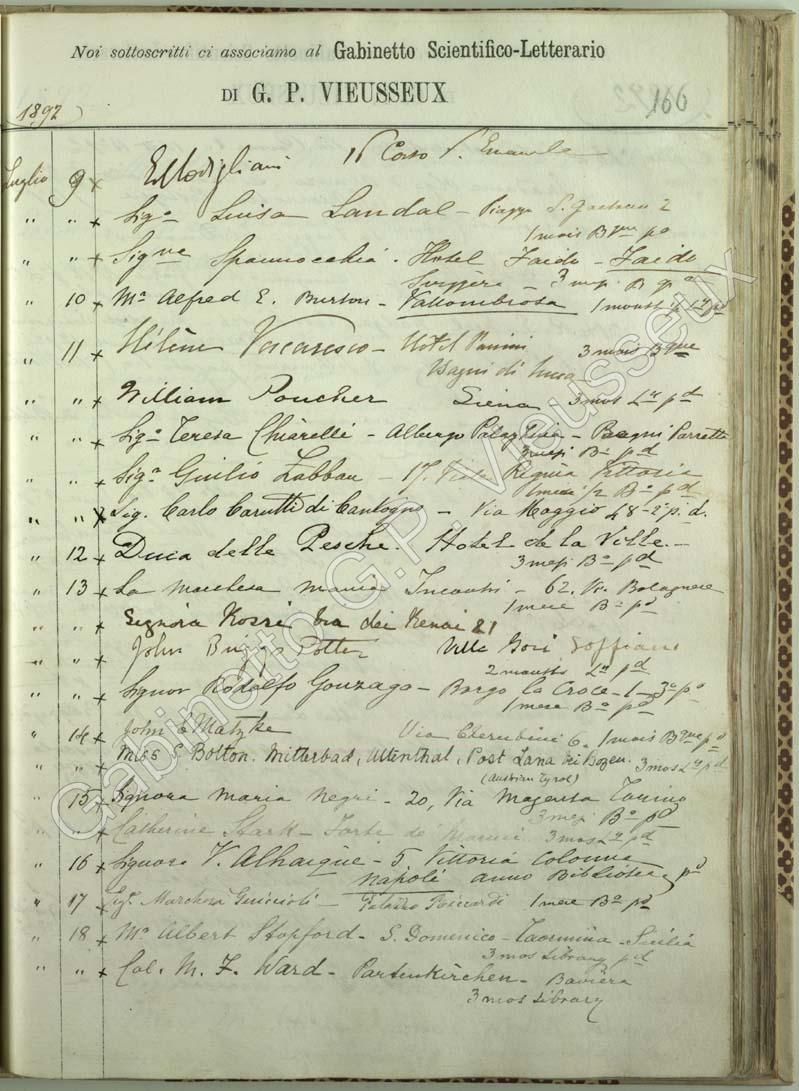 Noi sottoscritti ci associamo al Gabinetto Scientifico-Letterario
DI G. P. VIEUSSEUX
1892
166
Luglio 9 x EModigliani 16 Corso V. Emanuele
" " x Sigra Luisa Landal - Piazza S. Gaetano 2
1 mois Bque pd
" " x Signe Spannocchia. Hotel Faido - Faido
Svizzera - 3 mesi B
" 10 x Mr Alfred E. Burton - Vallombrosa 1 month Ly pd
" 11 x Hélène Vacaresco - Hotel Panini 3 mois Bque
Bagni di Lucca
" " x William Poucher Siena - 3 mos Ly pd
" " x Siga Teresa Chiarelli - Albergo - Bagni Porretta
3 mesi Ba pd
" " x Sigr Giulio Zabban - 17. Viale Regina Vittoria
1 mese 1/2 Ba pd
" " x Sig. Carlo Carutti di Cantogno - Via Maggio 48 - 2º p. d.
" 12 x Duca delle Pesche. Hotel de la Ville. -
3 mesi Ba pd
" 13 x La Marchesa Maria Incontri - 62. Va Bolognese
1 mese Ba pd
" " x Signora Rossi Via dei Renai 21
" " John Briggs Potter Villa Gori Soffiano
2 months Ly pd
" " x Signor Rodolfo Gonzaga - Borgo la Croce - 1 - 3º po
1 mese Ba pd
" 14 x John E Matzke Via Cherubini 6. 1 mois Bque pd
" " x Miss E Bolton. Mitterbad, Ultenthal, Post Lana bei Bozen. 3 mos Ly pd
(Austrian Tyrol)
" 15 x Signora Maria Negri - 20, Via Magenta Torino
3 mesi Ba pd
" " x Catherine Stark - Forte dei Marmi 3 mos Ly pd
" 16 x Signore V. Alhaique - 5 Vittoria Colonna
Napoli anno Biblioteca pd
" 17 x Siga Marchesa Guiccioli - Palazzo Riccardi 1 mese Ba pd
" 18 x Mr Albert Stopford - S. Domenico - Taormina - Sicilia
3 mos Library pd
" " x Col. M. F. Ward - Partenkirchen - Baviera
3 mos Library
Gabinetto G.P. Vieusseux